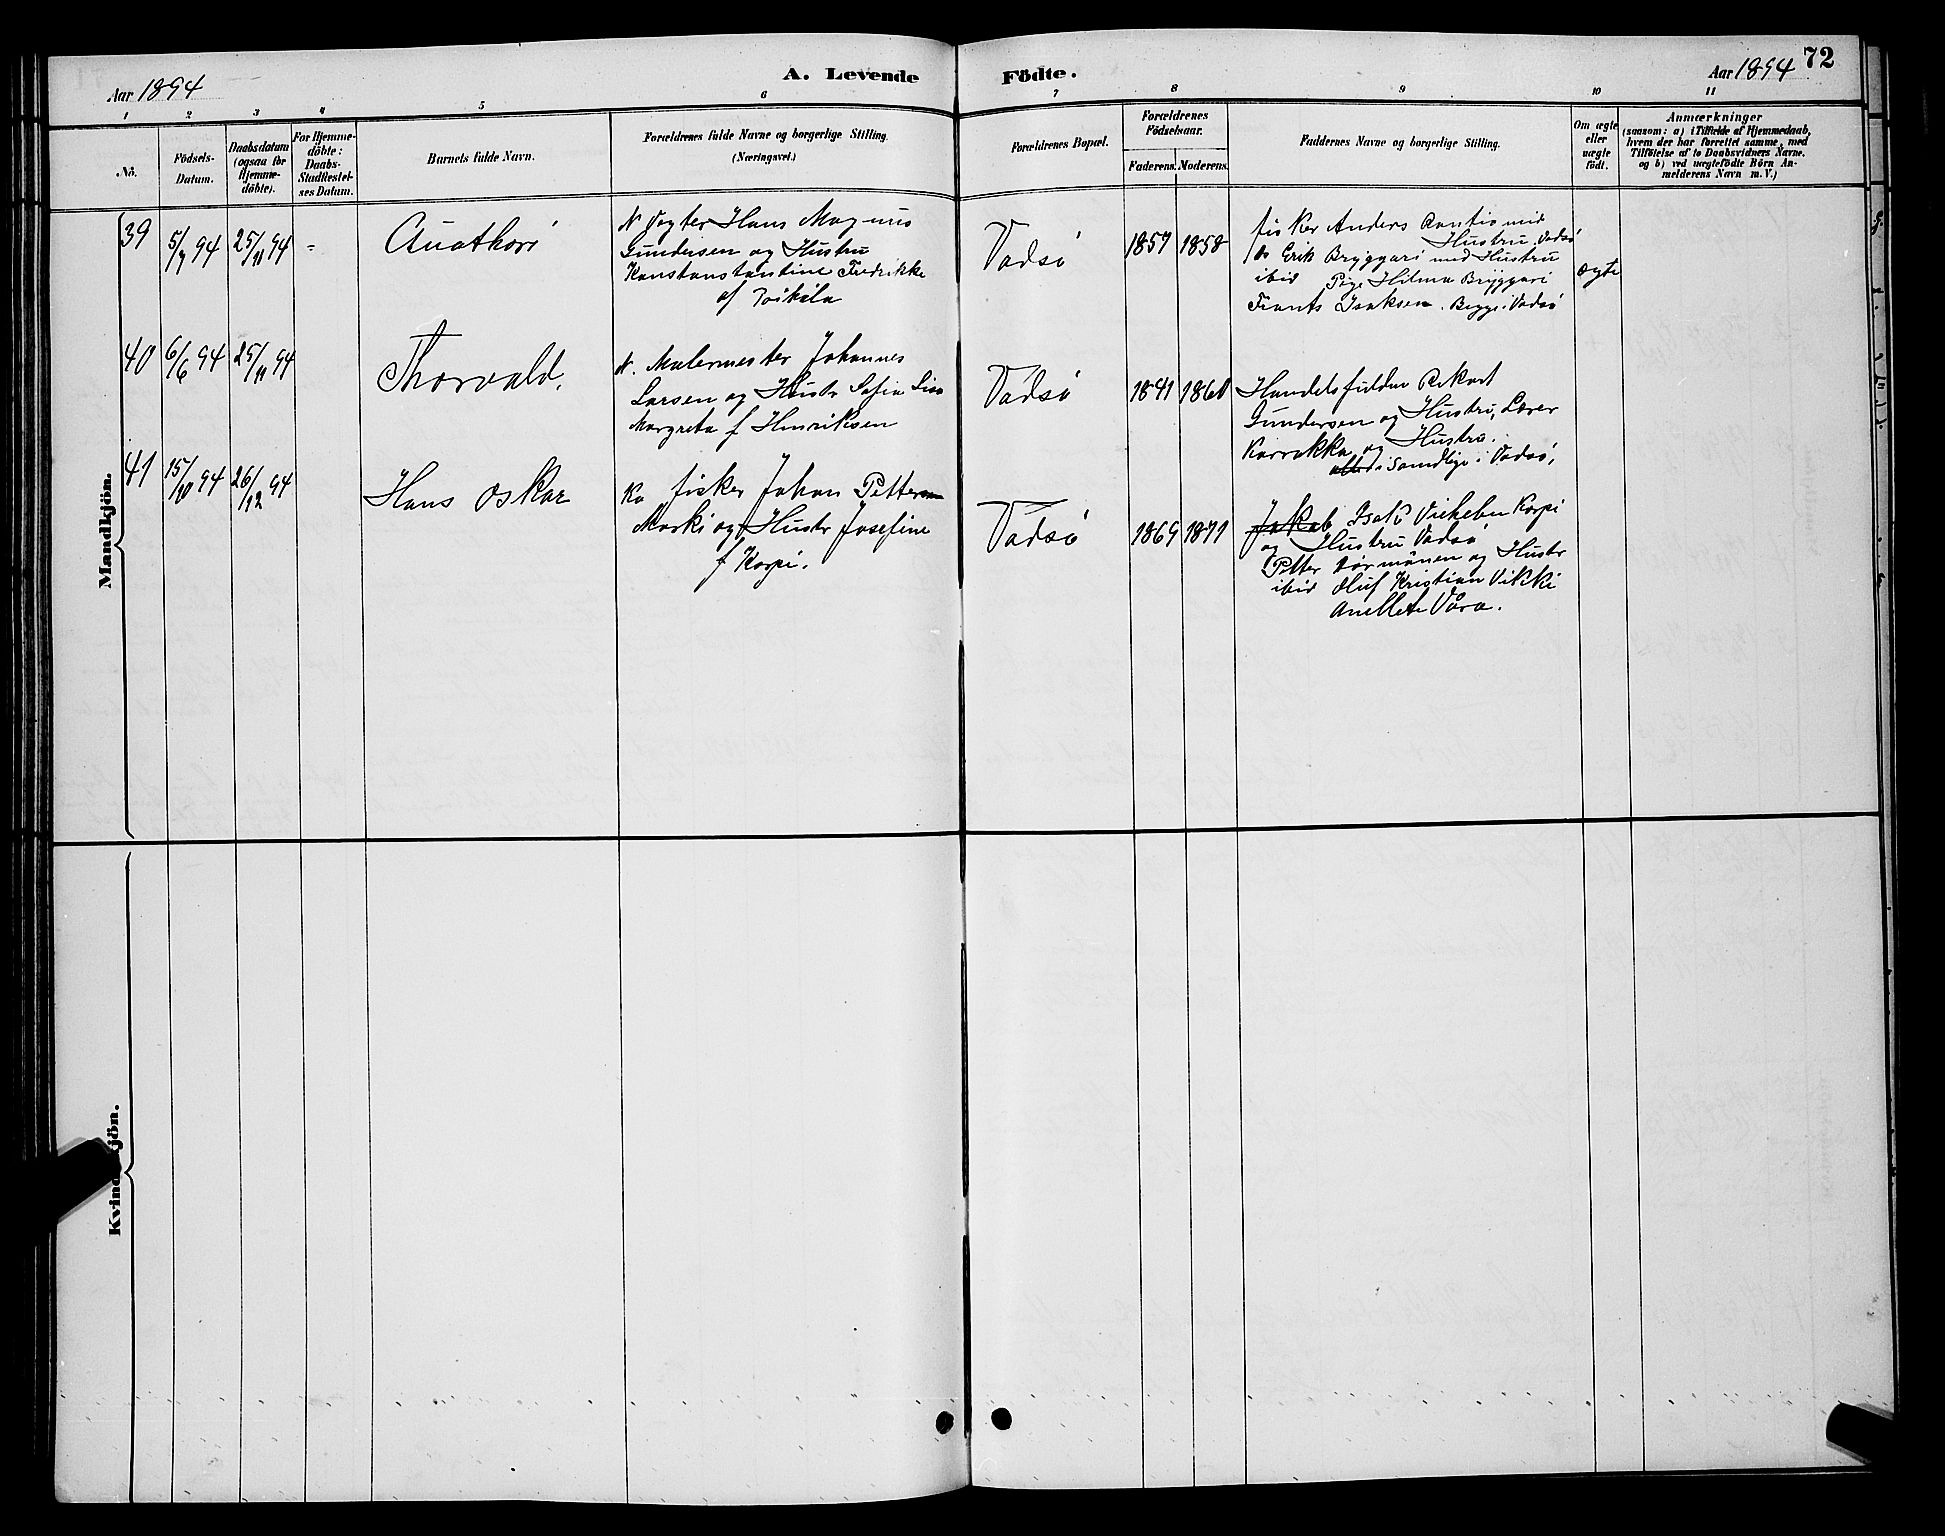 Aar 1894
A. Levende
Födte.
Aar 1894
72
1 2 3 4 5 6 7 8 9 10 11
No.
Födsels-
Datum.
Daabsdatum
(ogsaa for
Hjemme-
döbte).
For Hjemme-
döbte:
Daabs-
Stadfæstel-
ses Datum.
Barnets fulde Navn.
Forældrenes fulde Navne og borgerlige Stilling.
(Næringsvei.)
Forældrenes Bopæl.
Forældrenes
Födselsaar.
Faderens. Moderens.
Faddernes Navne og borgerlige Stilling.
Om ægte
eller
uægte
födt.
Anmærkninger
(saasom: a) i Tilfælde af Hjemmedaab,
hvem der har forrettet samme, med
Tilföielse af to Daabsvidners Navne,
og b) ved uægtefödte Börn An-
melderens Navn m.V.)
Mandkjön.
39
5/7 94
25/11 94
-
N Vogter Hans Magnus
Gundersen og Hustru
Konstanstantine Fredrikke
af
Vadsö
1857 1858
fisker Anders Rantio med
Hustru, Vadsö
do Erik Bryggari med Hustru
ibid Pige Hilma Bryggari
Frants Isaksen. Begge i Vadsö
ægte
40
6/6 94
25/11 94
Thorvald.
N. Malermester Johannes
Larsen og Hustr Sofia Lisa
Margreta f Henriksen
Vadsö
1841 1860
Handelsfuldm Rikart
Gundersen og Hustru, Lærer
Karrikka og Hustru.
samdlige i Vadsö,
41
15/10 94
26/12 94
Hans Oskar
Kv fisker Johan Petter
Marki og Hustr Josefine
f Korpi.
Vadsö
1869 1871
Jakob Isak Korpi
og Hustru Vadsö
Petter og Hustr
ibid Oluf Kristian Vikki
Anette Vara.
Kvindekjön.